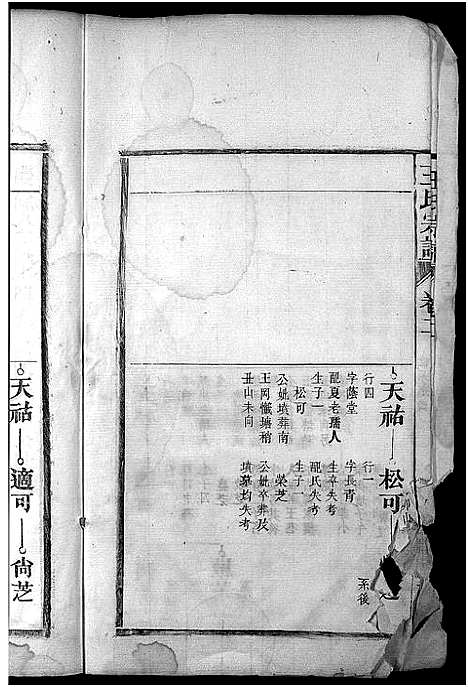 王氏宗譜
卷二
天祜
松可
行四
字蔭堂
配夏老孺人
生子一
松可
公妣墳葬南
王岡懺塘稍
丑山未向
行一
字長青
生卒失考
配氏失考
生子一
榮芝
公妣卒葬及
墳墓均失考
系後
天祜
適可
尙芝